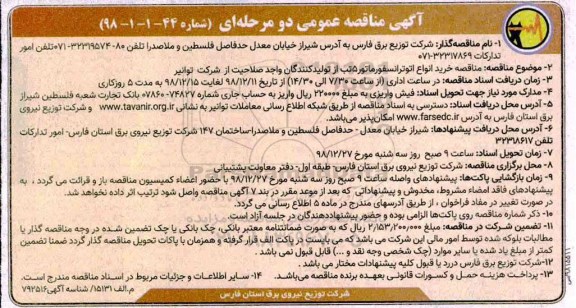 آگهی مناقصه عمومی دو مرحله‌ای (شماره ۴۴-۱-۱-۹۸)
۱- نام مناقصه‌گذار: شرکت توزیع برق فارس به آدرس شیراز خیابان معدل حدفاصل فلسطین و ملاصدرا تلفن ۸۰-۳۲۳۱۹۵۷۴-۰۷۱ تلفن امور
تدارکات ۳۲۳۱۷۸۶۹-۰۷۱
۲- موضوع مناقصه: مناقصه خرید انواع اتوترانسفورماتور۵تپ از تولیدکنندگان واجد صلاحیت از شرکت توانیر
۳- زمان دریافت اسناد مناقصه: در ساعت اداری (از ساعت ۷/۳۰ الی ۱۴/۳۰) از تاریخ ۹۸/۱۲/۱۱ لغایت ۹۸/۱۲/۱۵ به مدت ۵ روزکاری
۴- مدارک مورد نیاز جهت تحویل اسناد: فیش واریزی به مبلغ ۲۲۰۰۰۰ ریال واریز به حساب جاری شماره ۷۴۸۲۷-۰۷۸۶۰ بانک تجارت شعبه فلسطین شیراز
۵- آدرس محل دریافت اسناد: دسترسی به اسناد مناقصه از طریق شبکه اطلاع رسانی معاملات توانیر به نشانی www.tavanir.org.ir و شرکت توزیع نیروی
برق استان فارس به آدرس www.farsedc.ir امکان پذیر می‌باشد.
۶- آدرس محل دریافت پیشنهادها: شیراز خیابان معدل - حدفاصل فلسطین و ملاصدرا-ساختمان ۱۴۷ شرکت توزیع نیروی برق استان فارس- امور تدارکات
تلفن ۳۲۳۱۸۶۱۷
۷- زمان تحویل اسناد: ساعت ۹ صبح روز سه شنبه مورخ ۹۸/۱۲/۲۷
۸- محل برگزاری مناقصه: شرکت توزیع نیروی برق استان فارس- طبقه اول- دفتر معاونت پشتیبانی
۹- زمان بازگشایی پاکت‌ها: پیشنهادهای واصله ساعت ۹ صبح روز سه شنبه مورخ ۹۸/۱۲/۲۷ با حضور اعضاء کمیسیون مناقصه باز و قرائت می گردد ، به
پیشنهادهای فاقد امضاء مشروط، مخدوش و پیشنهاداتی که بعد از موعد مقرر در بند ۷ آگهی مناقصه واصل شود ترتیب اثر داده نخواهد شد.
در صورت تغییر در مفاد فراخوان ، از طریق آدرسهای مندرج در ماده ۵ اطلاع رسانی می گردد.
۱۰- ذکر شماره مناقصه روی پاکت‌ها الزامی بوده و حضور پیشنهاددهندگان در جلسه آزاد است.
۱۱- تضمین شرکت در مناقصه: مبلغ ۲/۱۵۳/۲۰۰/۰۰۰ ریال که به صورت ضمانتنامه معتبر بانکی، چک بانکی یا چک تضمین شده در وجه مناقصه گذار یا
مطالبات بلوکه شده توسط امور مالی این شرکت می باشد که می بایست در پاکت الف قرار گرفته و همزمان با پاکات تحویل مناقصه گذار گردد ضمنا تضمین
کمتر از مبلغ یاد شده یا سایر موارد (چک شخصی وجه نقد و ...) قابل قبول نمی باشد .
۱۲- شرکت توزیع برق فارس دررد یا قبول کلیه پیشنهادات مختار می باشد .
۱۳- پرداخت هزینه حمل و کسورات قانونی بعهده برنده مناقصه می‌باشد. ۱۴- سایر اطلاعات و جزئیات مربوط در اسناد مناقصه مندرج است.
م.الف ۱۵۱۳۱/ شناسه آگهی۷۹۲۵۱۶
شرکت توزیع نیروی برق استان فارس